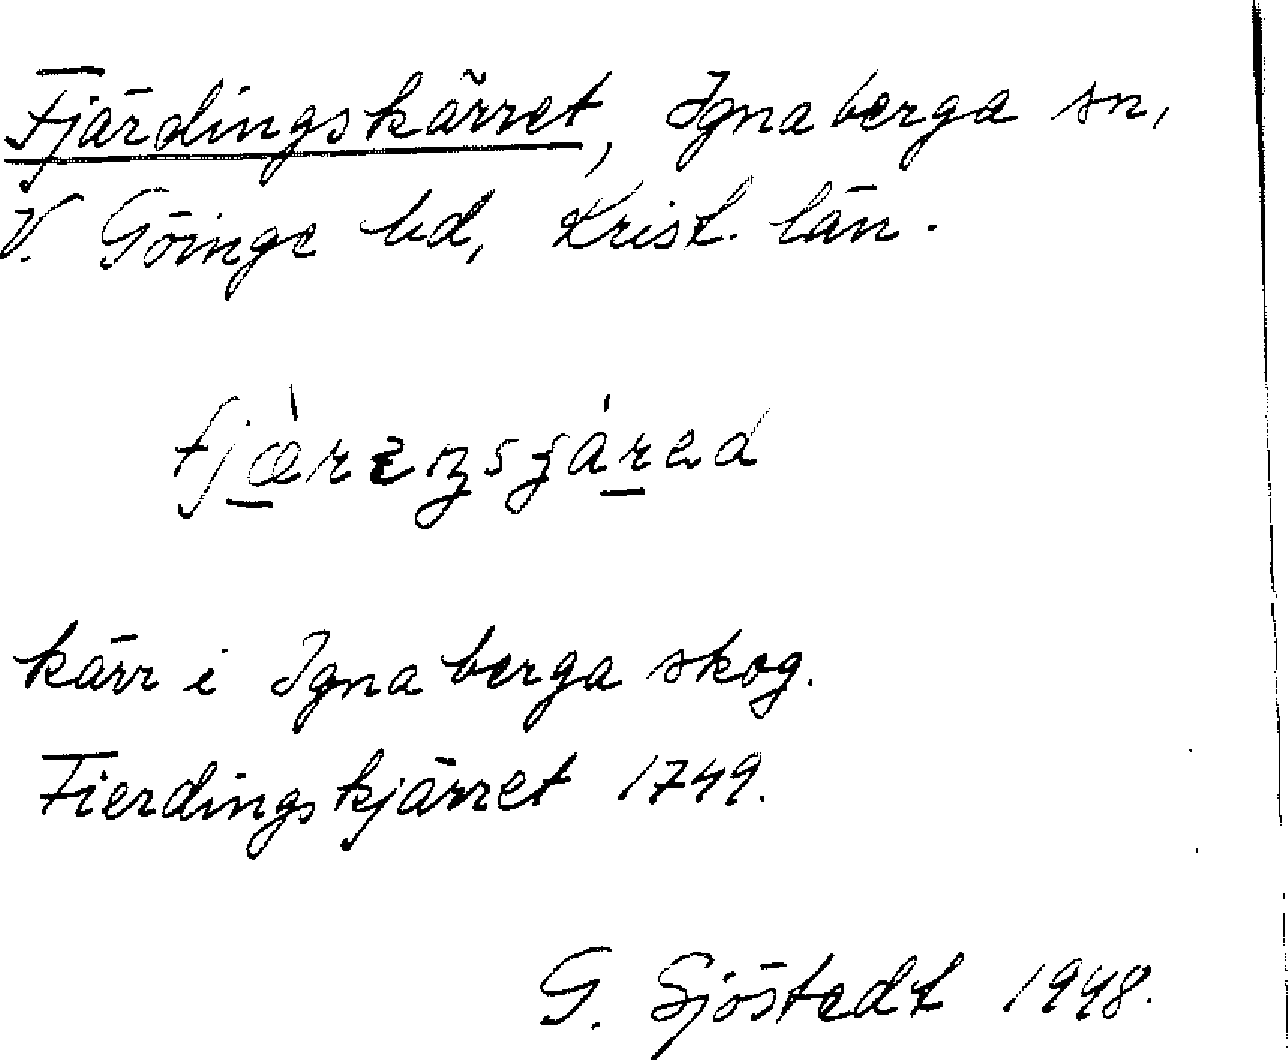 Fjärdingskärret, Ignaberga sn,
V. Göinge hd, Krist. län.
kärr i Ignaberga skog.
Fierdingskjärret 1749.
G. Sjöstedt 1948.